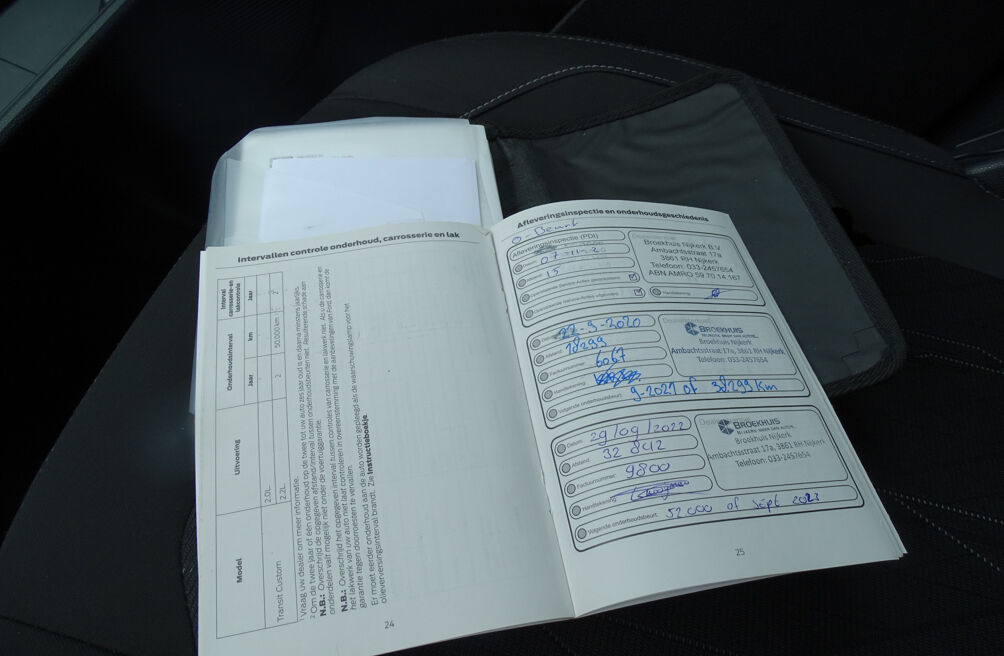 Intervallen controle onderhoud, carrosserie en lak
Model
Uitvoering
Onderhoudsinterval
Interval carrosserie- en lakcontrole
Jaar
km
Jaar
Transit Custom
2.0L
2.2L
2
50.000 km
2
¹ Vraag uw dealer om meer informatie.
² Om de twee jaar of één onderhoud op de twee tot uw auto zes jaar oud is en daarna minstens jaarlijks.
N.B.: Overschrijd de opgegeven afstand/interval tussen onderhoudsbeurten niet. Resulterende schade aan
onderdelen valt mogelijk niet onder de voertuiggarantie.
N.B.: Overschrijd het opgegeven interval tussen controles van carrosserie en lakwerk niet. Als u de carrosserie en
het lakwerk van uw auto niet laat controleren in overeenstemming met de aanbevelingen van Ford, dan komt de
garantie tegen doorroesten te vervallen.
Er moet eerder onderhoud aan de auto worden gepleegd als de waarschuwingslamp voor het
olieverversingsinterval brandt. Zie Instructieboekje.
24
Afleveringsinspectie en onderhoudsgeschiedenis
0-Beurt
Afleveringsinspectie (PDI)
07-11-20
15
Handtekening:
Broekhuis Nijkerk B.V.
Ambachtsstraat 17a
3861 RH Nijkerk
Telefoon: 033-2457654
ABN AMRO 59 70 14 167
22-9-2020
Afstand: 18299
Factuurnummer: 6067
Handtekening:
Volgende onderhoudsbeurt: 9-2021 of 38299 Km
BROEKHUIS
Broekhuis Nijkerk
Ambachtsstraat 17a, 3861 RH Nijkerk
Telefoon: 033-2457654
Datum: 29/09/2022
Afstand: 32 842
Factuurnummer: 9800
Handtekening:
Volgende onderhoudsbeurt: 52000 of sept 2023
BROEKHUIS
Broekhuis Nijkerk
Ambachtsstraat 17a, 3861 RH Nijkerk
Telefoon: 033-2457654
25